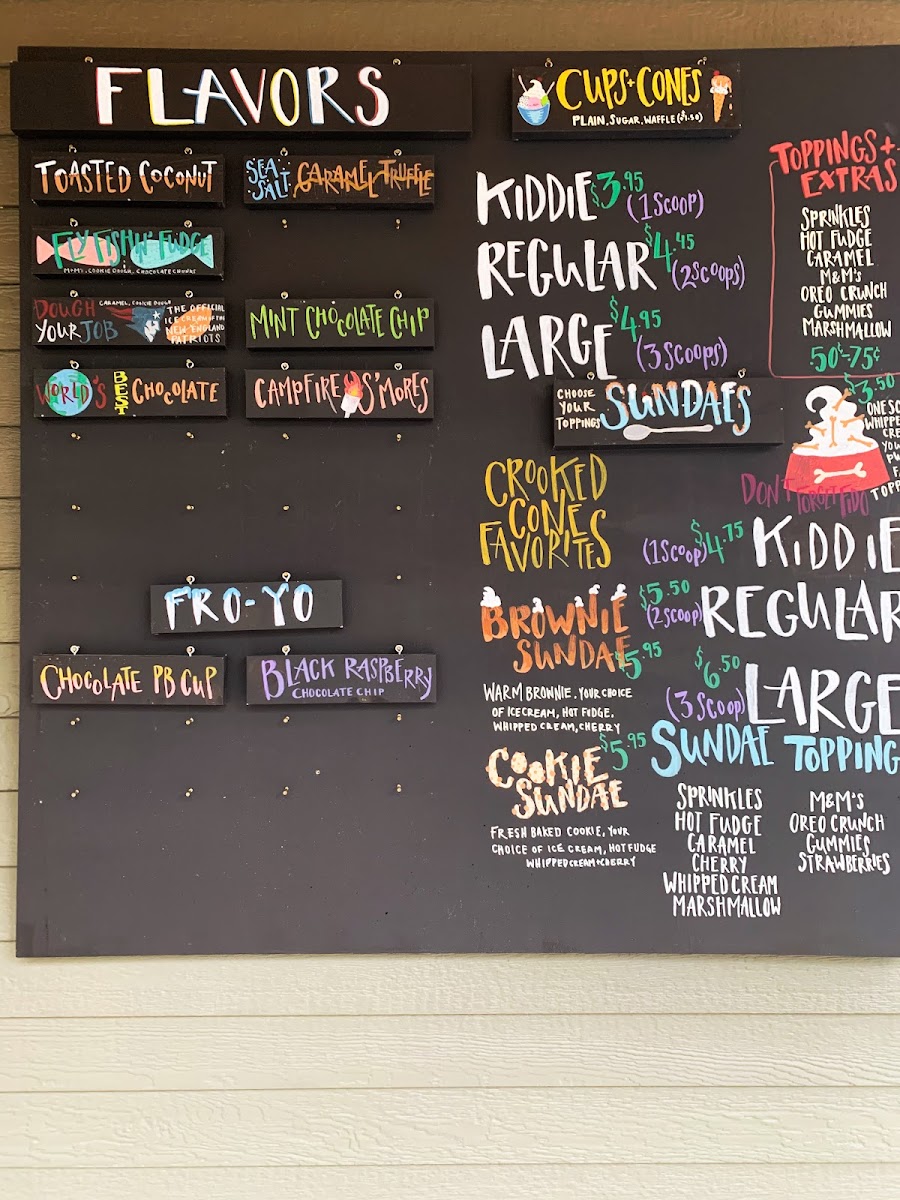 FLAVORS
TOASTED COCONUT
SEA SALT CARAMEL TRUFFLE
FLY FISHIN' FUDGE
M&M'S, COOKIE DOUGH, CHOCOLATE CHUNKS
DOUGH YOUR JOB
CARAMEL, COOKIE DOUGH
THE OFFICIAL
ICE CREAM OF THE
NEW ENGLAND
PATRIOTS
MINT CHOCOLATE CHIP
WORLD'S BEST CHOCOLATE
CAMPFIRE S'MORES
FRO-YO
CHOCOLATE PB CUP
BLACK RASPBERRY
CHOCOLATE CHIP
CUPS + CONES
PLAIN. SUGAR. WAFFLE ($1.50)
KIDDIE $3.95 (1 SCOOP)
REGULAR $4.45 (2 SCOOPS)
LARGE $4.95 (3 SCOOPS)
TOPPINGS +
EXTRAS
SPRINKLES
HOT FUDGE
CARAMEL
M&M's
OREO CRUNCH
GUMMIES
MARSHMALLOW
50¢-75¢
CHOOSE
YOUR
TOPPINGS
SUNDAES
$3.50
ONE SC
WHIPPE
CRE
YOU
TOPP
DON'T FORGET FIDO
CROOKED
CONE
FAVORITES
(1 SCOOP) $4.75 KIDDIE
$5.50 (2 SCOOP) REGULAR
$6.50 (3 SCOOP) LARGE
BROWNIE
SUNDAE $5.95
WARM BROWNIE. YOUR CHOICE
OF ICE CREAM, HOT FUDGE.
WHIPPED CREAM, CHERRY
COOKIE
SUNDAE $5.95
FRESH BAKED COOKIE, YOUR
CHOICE OF ICE CREAM, HOT FUDGE
WHIPPED CREAM + CHERRY
SUNDAE TOPPING
SPRINKLES
HOT FUDGE
CARAMEL
CHERRY
WHIPPED CREAM
MARSHMALLOW
M&M's
OREO CRUNCH
GUMMIES
STRAWBERRIES